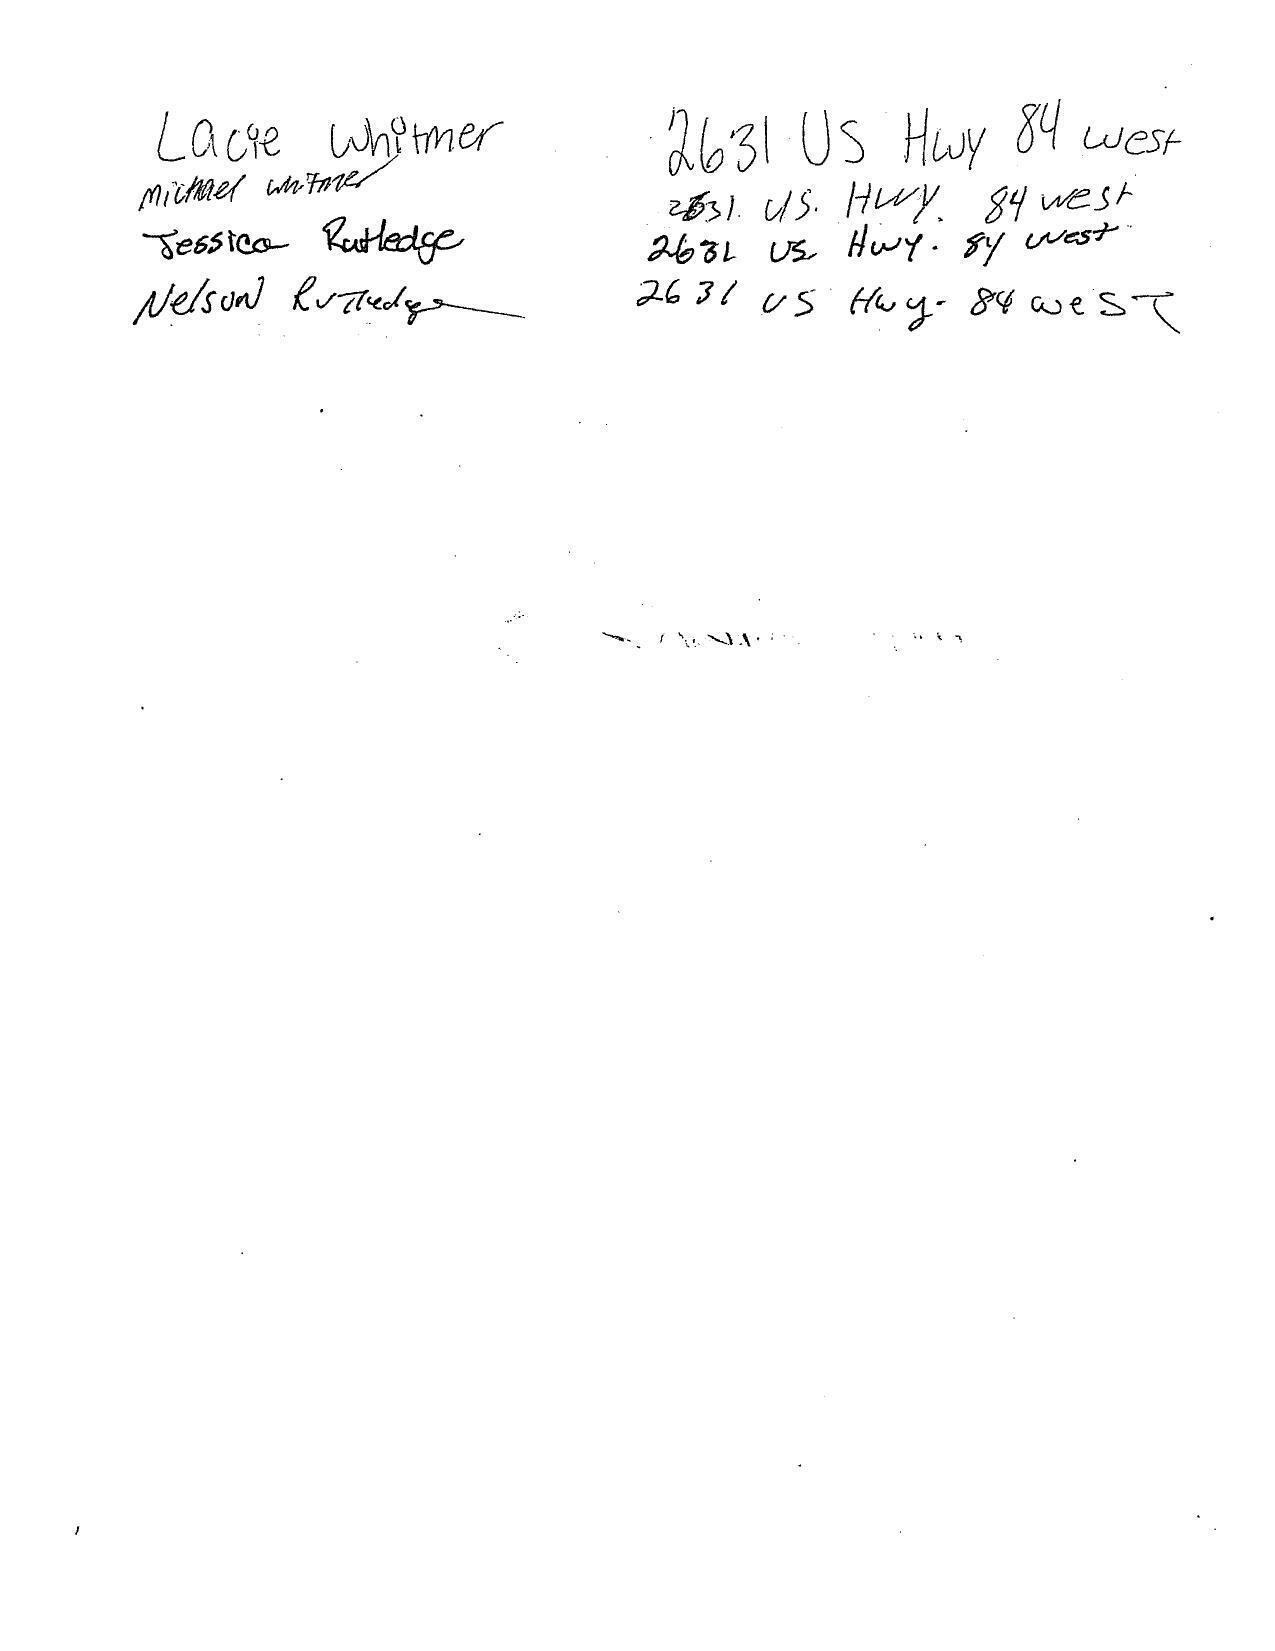 Lacie Whitmer 2631 US Hwy 84 west
Michael Whitmer 2631. US. Hwy. 84 west
Jessica Rutledge 2631 US Hwy. 84 west
Nelson Rutledge 2631 US Hwy. 84 west